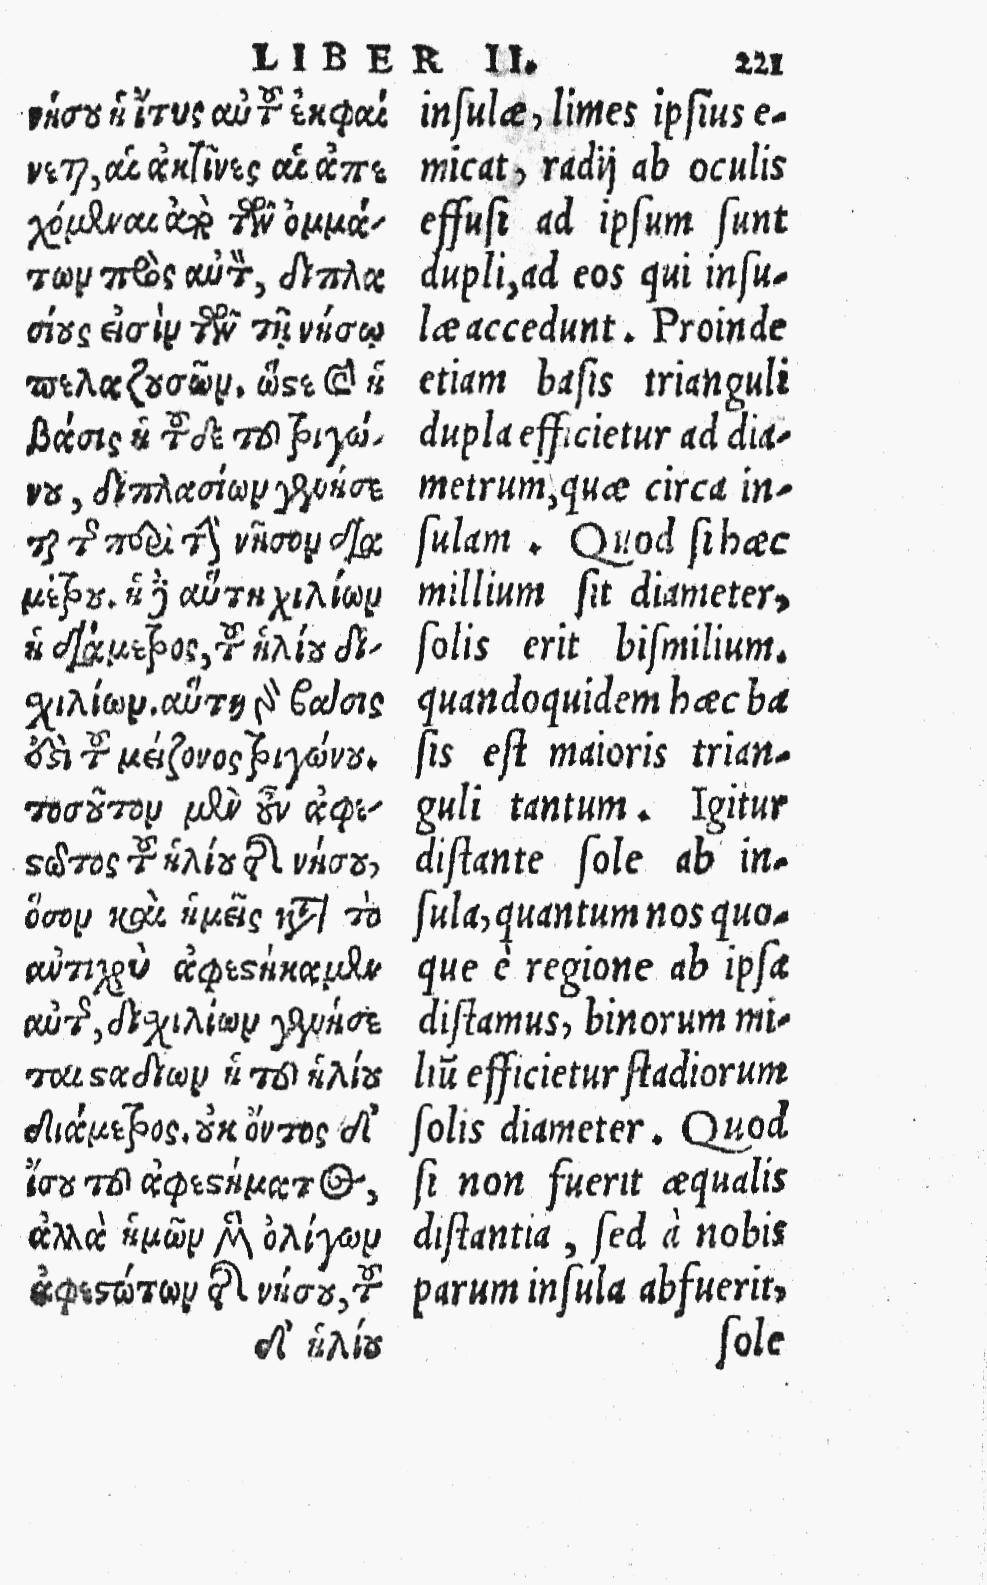 LIBER II. 221
νήσου ἡ ἴτυς αὐτοῦ ἐκφαί
νεται, αἱ ἀκτῖνες αἱ ἀπε
χόμεναι ἀπὸ τῶν ὀμμά-
των πρὸς αὐτὸν, διπλα
σίους εἰσὶν τῶν τῇ νήσῳ
πελαζουσῶν. ὥστε καὶ ἡ
βάσις ἡ τοῦδε τοῦ τριγώ-
νου, διπλασίων γενήσε
ται τῆς περὶ τὴν νῆσον δια
μέτρου. αὕτη χιλίων
ἡ διάμετρος, τοῦ ἡλίου δι-
χιλίων. αὕτη γὰρ βάσις
ἐστὶ τοῦ μείζονος τριγώνου.
τοσοῦτον μὲν οὖν ἀφε-
στῶτος τοῦ ἡλίου τῆς νήσου,
ὅσον καὶ ἡμεῖς κατὰ τὸ
αὐτικρὺ ἀφεστήκαμεν
αὐτῆς, διχιλίων γενήσε
ται σταδίων ἡ τοῦ ἡλίου
διάμετρος. οὐκ ὄντος δὲ
ἴσου τοῦ ἀφεστήματος,
ἀλλὰ ἡμῶν μὲν ὀλίγων
ἀφεστώτων τῆς νήσου, τοῦ
δὲ ἡλίου
inſulæ, limes ipſius e-
micat, radij ab oculis
effuſi ad ipſum ſunt
dupli, ad eos qui inſu-
læ accedunt. Proinde
etiam baſis trianguli
dupla efficietur ad dia-
metrum, quæ circa in-
ſulam. Quod ſi hæc
millium ſit diameter,
ſolis erit biſmilium.
quandoquidem hæc ba
ſis eſt maioris trian-
guli tantum. Igitur
diſtante ſole ab in-
ſula, quantum nos quo-
que è regione ab ipſa
diſtamus, binorum mi-
liū efficietur ſtadiorum
ſolis diameter. Quod
ſi non fuerit æqualis
diſtantia, ſed à nobis
parum inſula abfuerit,
ſole